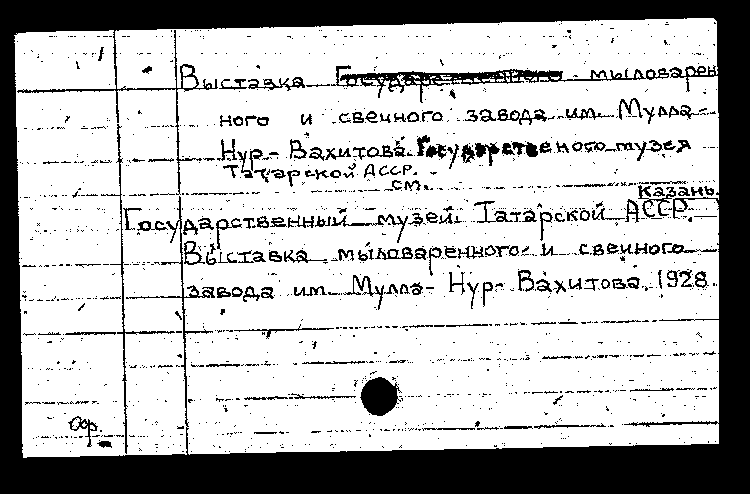 Выставка Государственного мыловарен
ного и свечного завода им. Мулла-
Нур-Вахитова. Государственного музея
Татарской АССР.
см.
Казань.
Государственный музей Татарской АССР.
Выставка мыловаренного и свечного
завода им. Мулла-Нур-Вахитова. 1928.